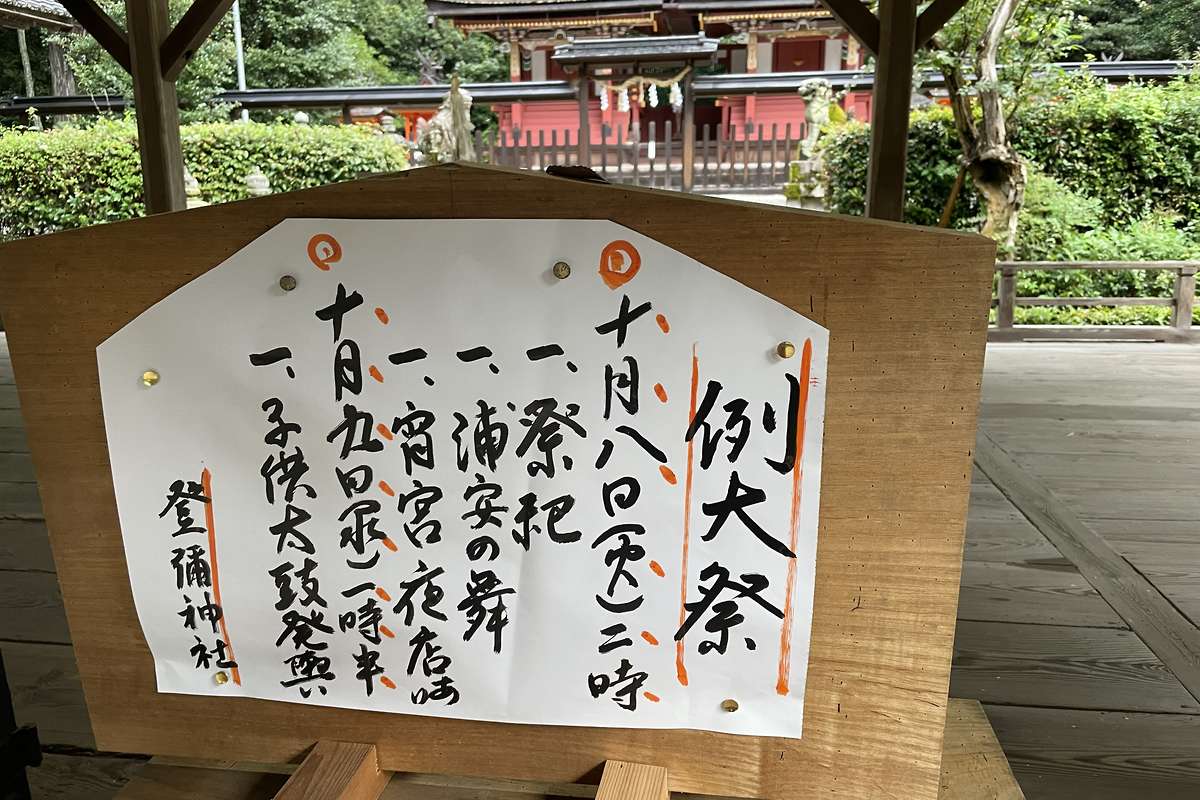 例大祭
十月八日(火)二時
一、祭祀
一、浦安の舞
一、宵宮 夜店
十月九日(水)一時半
一、子供太鼓発輿
登彌神社